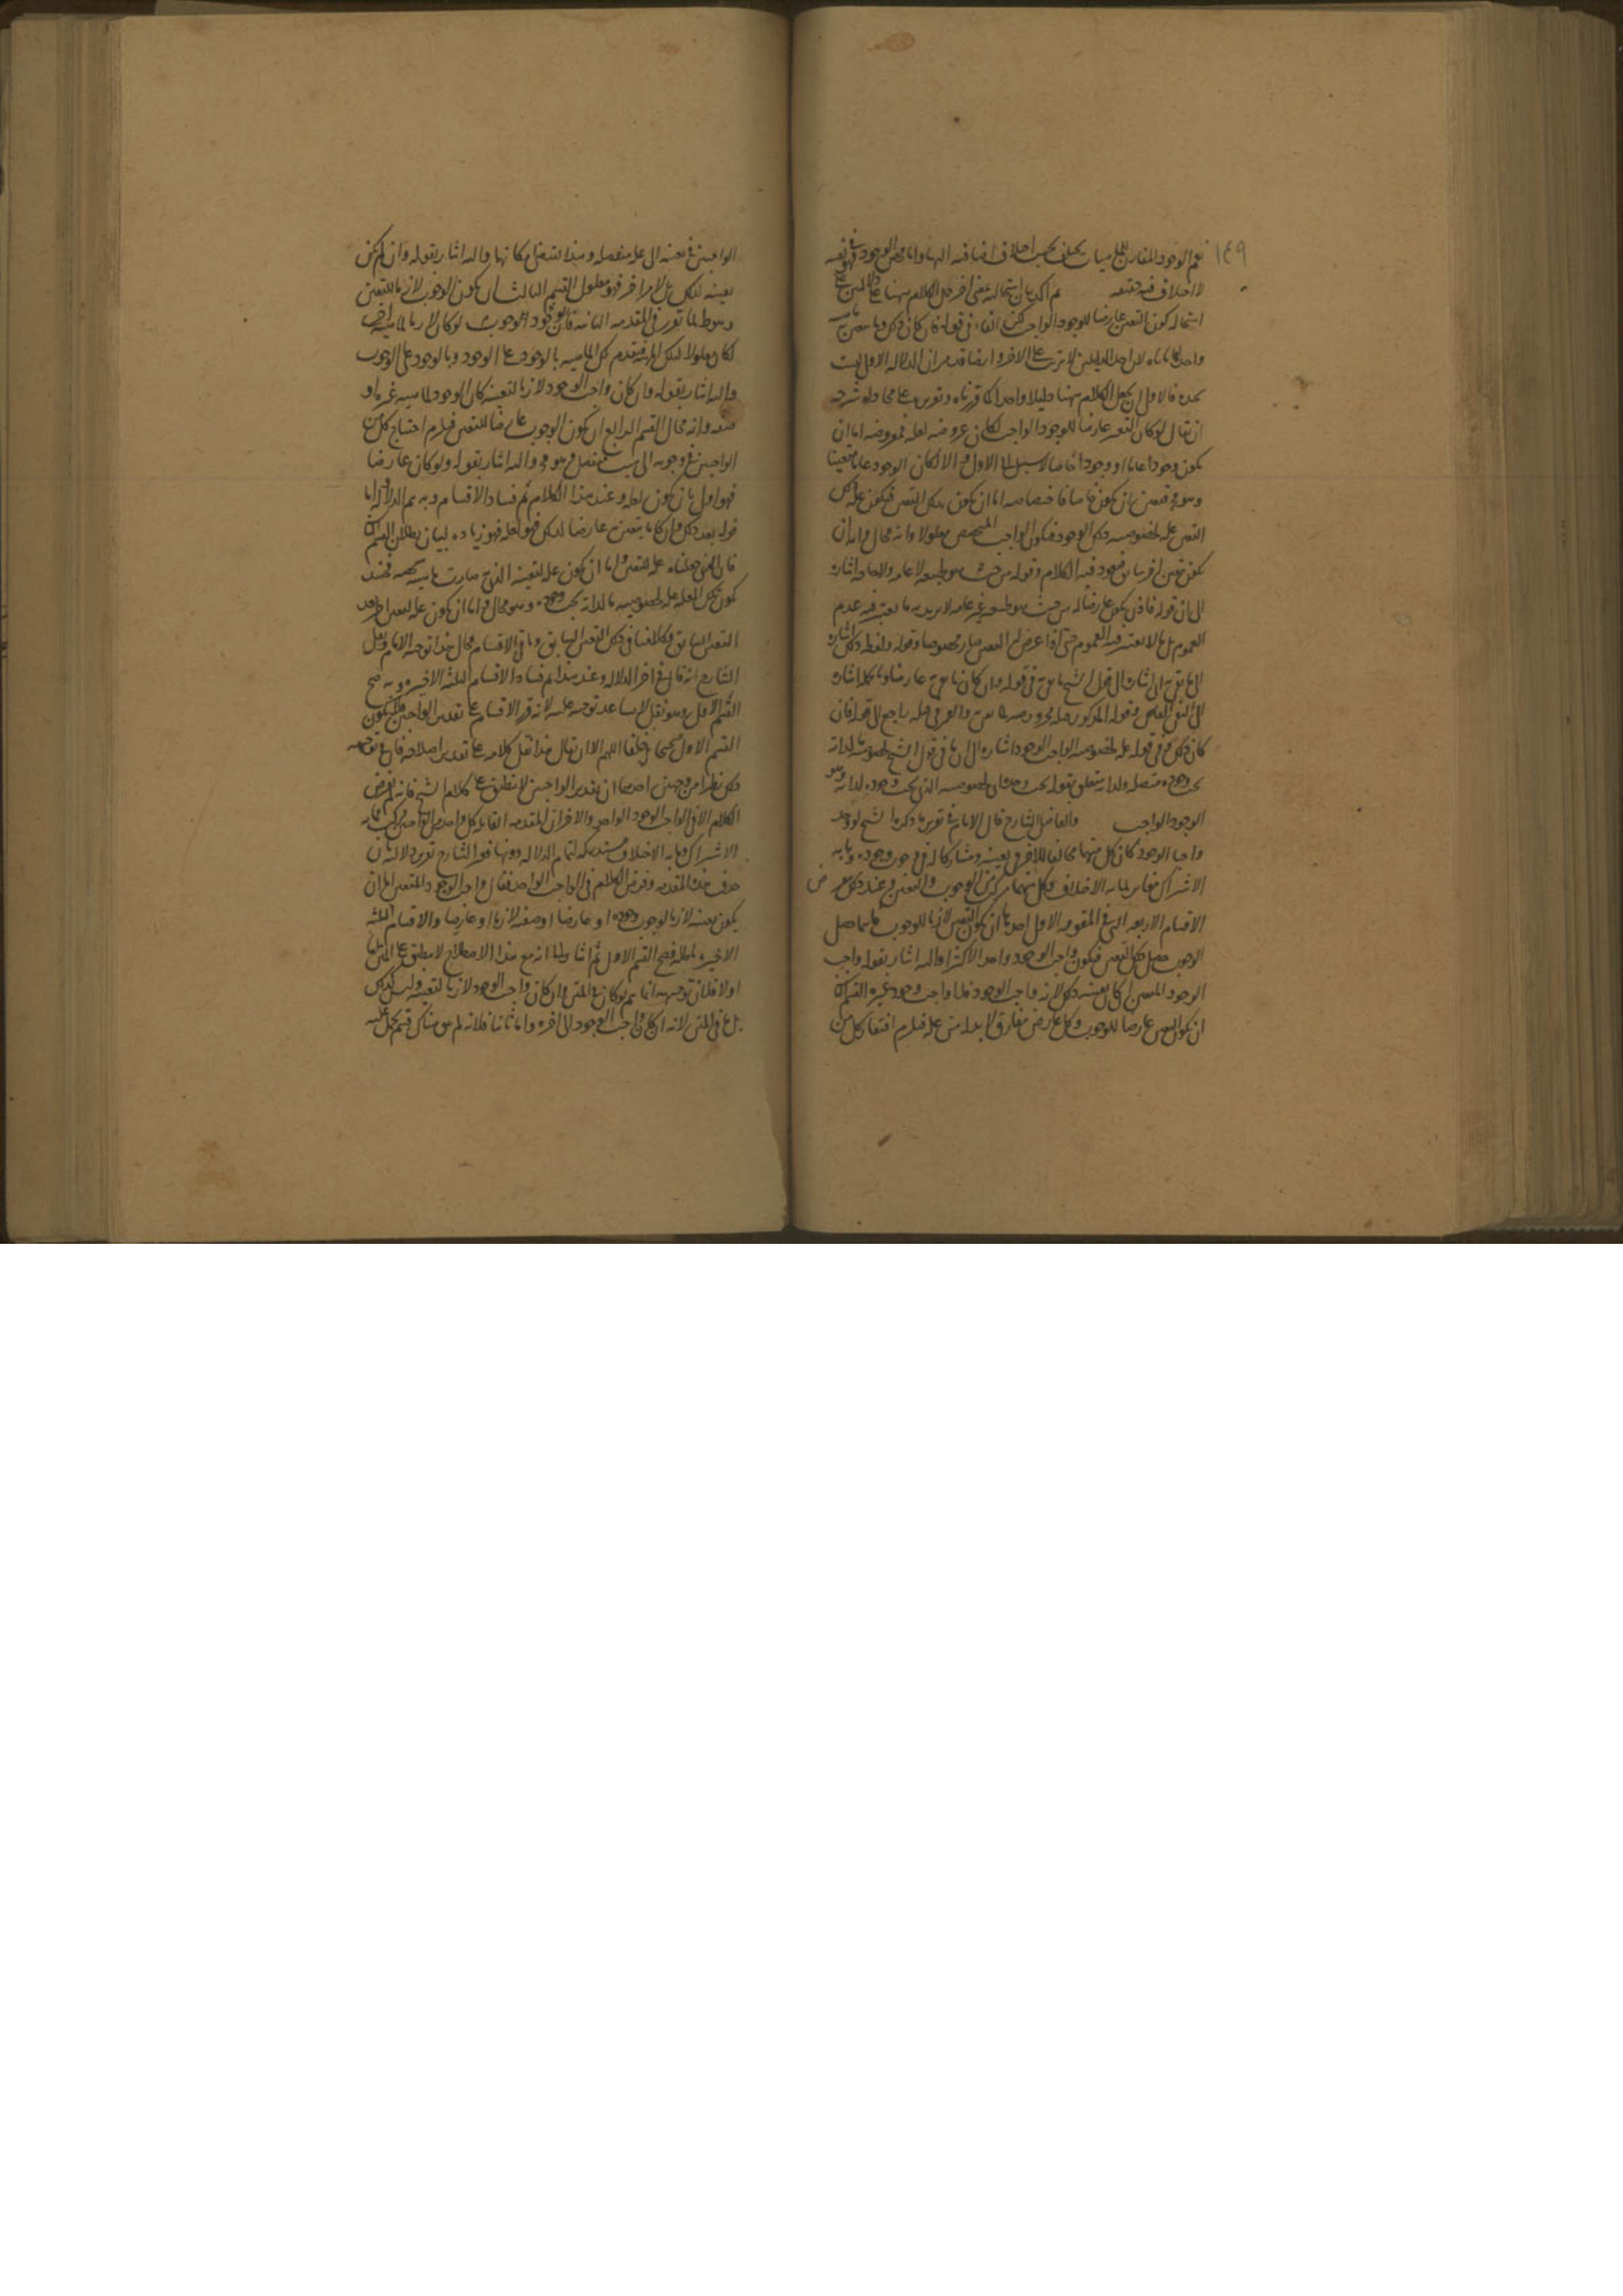 ١٤٩
نعم الوجود المقارن للماهيات يختلف بحسب اختلاف اضافته اليها واما محض الوجود فهو في نفسه
لا اختلاف فيه حقيقة ثم اكد بيان استحالته بمعنى اخر حمل الكلام ههنا على
استحالة كون التعين عارضا للوجود الواجب لكن الفاء في قوله فان كان ذلك وما يتعين به
واحدا لان احد الدليلين لا يترتب على الاخر وايضا قد مر ان الدلالة الاولى ليست
فالاولى ان يجعل الكلام ههنا دليلا واحدا كما قررناه وتقريره على محاذاة شرحه
ان يقال لو كان التعين عارضا للوجود الواجب لكان عروضه لعلة فمعروضه اما ان
يكون وجودا عاما او وجودا خاصا لا سبيل الى الاول والا لكان الوجود عاما متعينا
وهو فتعين ان يكون خاصا فاختصاصه اما ان يكون بذلك التعين فيكون علة ذلك
التعين علة لخصوصية ذلك الوجود فيكون الواجب المخصص معلولا وانه محال واما ان
يكون بتعين اخر سابق فيعود فيه الكلام وقوله من حيث هو طبيعة لا عامة ولا خاصة اشارة
الى ان قوله فاذن يكون عارضا له من حيث هو طبيعة غير عامة لا يريد به ما يعتبر فيه عدم
العموم بل ما لا يعتبر فيه العموم حتى اذا عرض له التعين صار مخصوصا وقوله ولفظة ذلك اشارة
الى ما يتعين به اشارة الى قول الشيخ ما يتعين به في قوله وان كان ما يتعين به عارضا
كان ذلك في قوله علة لخصوصية الواجب الوجود اشارة الى ما في قول الشيخ لخصوصية ما لذاته
يجب وجوده متصلة ولذاته متعلق بقوله يجب وجوده اي لخصوصية الذي يجب وجوده لذاته وهو
الوجود الواجب والفاضل الشارح قال الامام في تقرير ما ذكره الشيخ لو وجد
واجبا الوجود كان كل منهما مخالفا للاخر في تعينه ومشاركا له في وجوب وجوده وما به
الاشتراك مغاير لما به الاختلاف وكل منهما مركب من الوجوب والتعين وعند ذلك
الاقسام الاربعة التي في المقدمة الاولى احدها ان يكون التعين لازما للوجوب فاينما حصل
الوجوب حصل ذلك التعين فيكون واجب الوجود واحدا لا اكثر واليه اشار بقوله واجب
الوجود المتعين ان كان تعينه ذلك لانه واجب الوجود فلا واجب وجود غيره القسم الثاني
ان يكون التعين عارضا للوجوب وكل عارض مفارق لا بد له من علة فيلزم افتقار كل من
الواجبين في تعينه الى علة منفصلة وهذا يقتضي امكانهما واليه اشار بقوله وان لم يكن
تعينه لذلك بل لامر اخر فهو معلول القسم الثالث ان يكون الوجوب لازما للتعين
وهو باطل لما تقرر في المقدمة الثانية فان الوجود الوجوب لو كان لازما لماهية اخرى
لكان معلولا لتلك الماهية فتتقدم تلك الماهية بالوجود على الوجود وبالوجود على الوجوب
واليه اشار بقوله وان كان واجب الوجود لازما لتعينه كان الوجود لماهية غيره او
صفة وانه محال القسم الرابع ان يكون الوجوب عارضا للتعين فيلزم احتياج كل من
الواجبين في وجوبه الى سبب منفصل وهو واليه اشار بقوله ولو كان عارضا
فهو اولى بان يكون لعلة وعند هذا الكلام تم فساد الاقسام وبه تم الدلالة اما
قوله بعد ذلك وان كان ما يتعين به عارضا لذلك فهو لعلة فهو زيادة لبيان بطلان القسم الثاني
علة للتعين اما ان تكون علة لتعينه الذي صارت ماهيته فحينئذ
تكون تلك العلة علة لخصوصية ما لذاته يجب وجوده وهو محال واما ان تكون علة لتعين اخر بعد
التعين السابق فكلامنا في ذلك التعين السابق وباقي الاقسام محال هذا توجيه الامام ونقل
الشارح انه قال في اخر الدلالة وعند هذا تم فساد الاقسام الثلثة الاخيرة وبه صح
القسم الاول وهو نقل لا يساعد توجيهه عليه لانه قرر الاقسام على تقدير الواجبين فكيف يكون
القسم الاول صحيحا خلفا اللهم الا ان يقال هذا نقل كلامه على تقدير اصلاحه فان في توجيهه
ذلك نظرا من وجهين احدهما ان تقدير الواجبين لا ينطبق على كلام الشيخ فانه لم يفرض
الكلام الا في الواجب الوجود الواحد والاخر ان المقدمة القائلة كل واحد من الواجبين مركب مما به
الاشتراك وما به الاختلاف مستدركة لتمام الدلالة دونها فقرر الشارح تقرير دلالته بان
حذف هذه المقدمة وفرض الكلام في الواجب الواحد فقال واجب الوجود المتعين اما ان
يكون تعينه لازما لوجوب وجوده او عارضا او وصفه لازما او عارضا والاقسام الثلثة
الاخيرة باطلة فصح القسم الاول ثم اشار الى انه مع هذا الاصلاح لا ينطبق على المتن اما
اولا فلان توجيهه انما يتم لو كان في المتن وان كان واجب الوجود لازما لتعينه وليس كذلك
بل في المتن لانه ان كان واجب الوجود الى اخره واما ثانيا فلانه لم يبق هناك قسم يحمل عليه